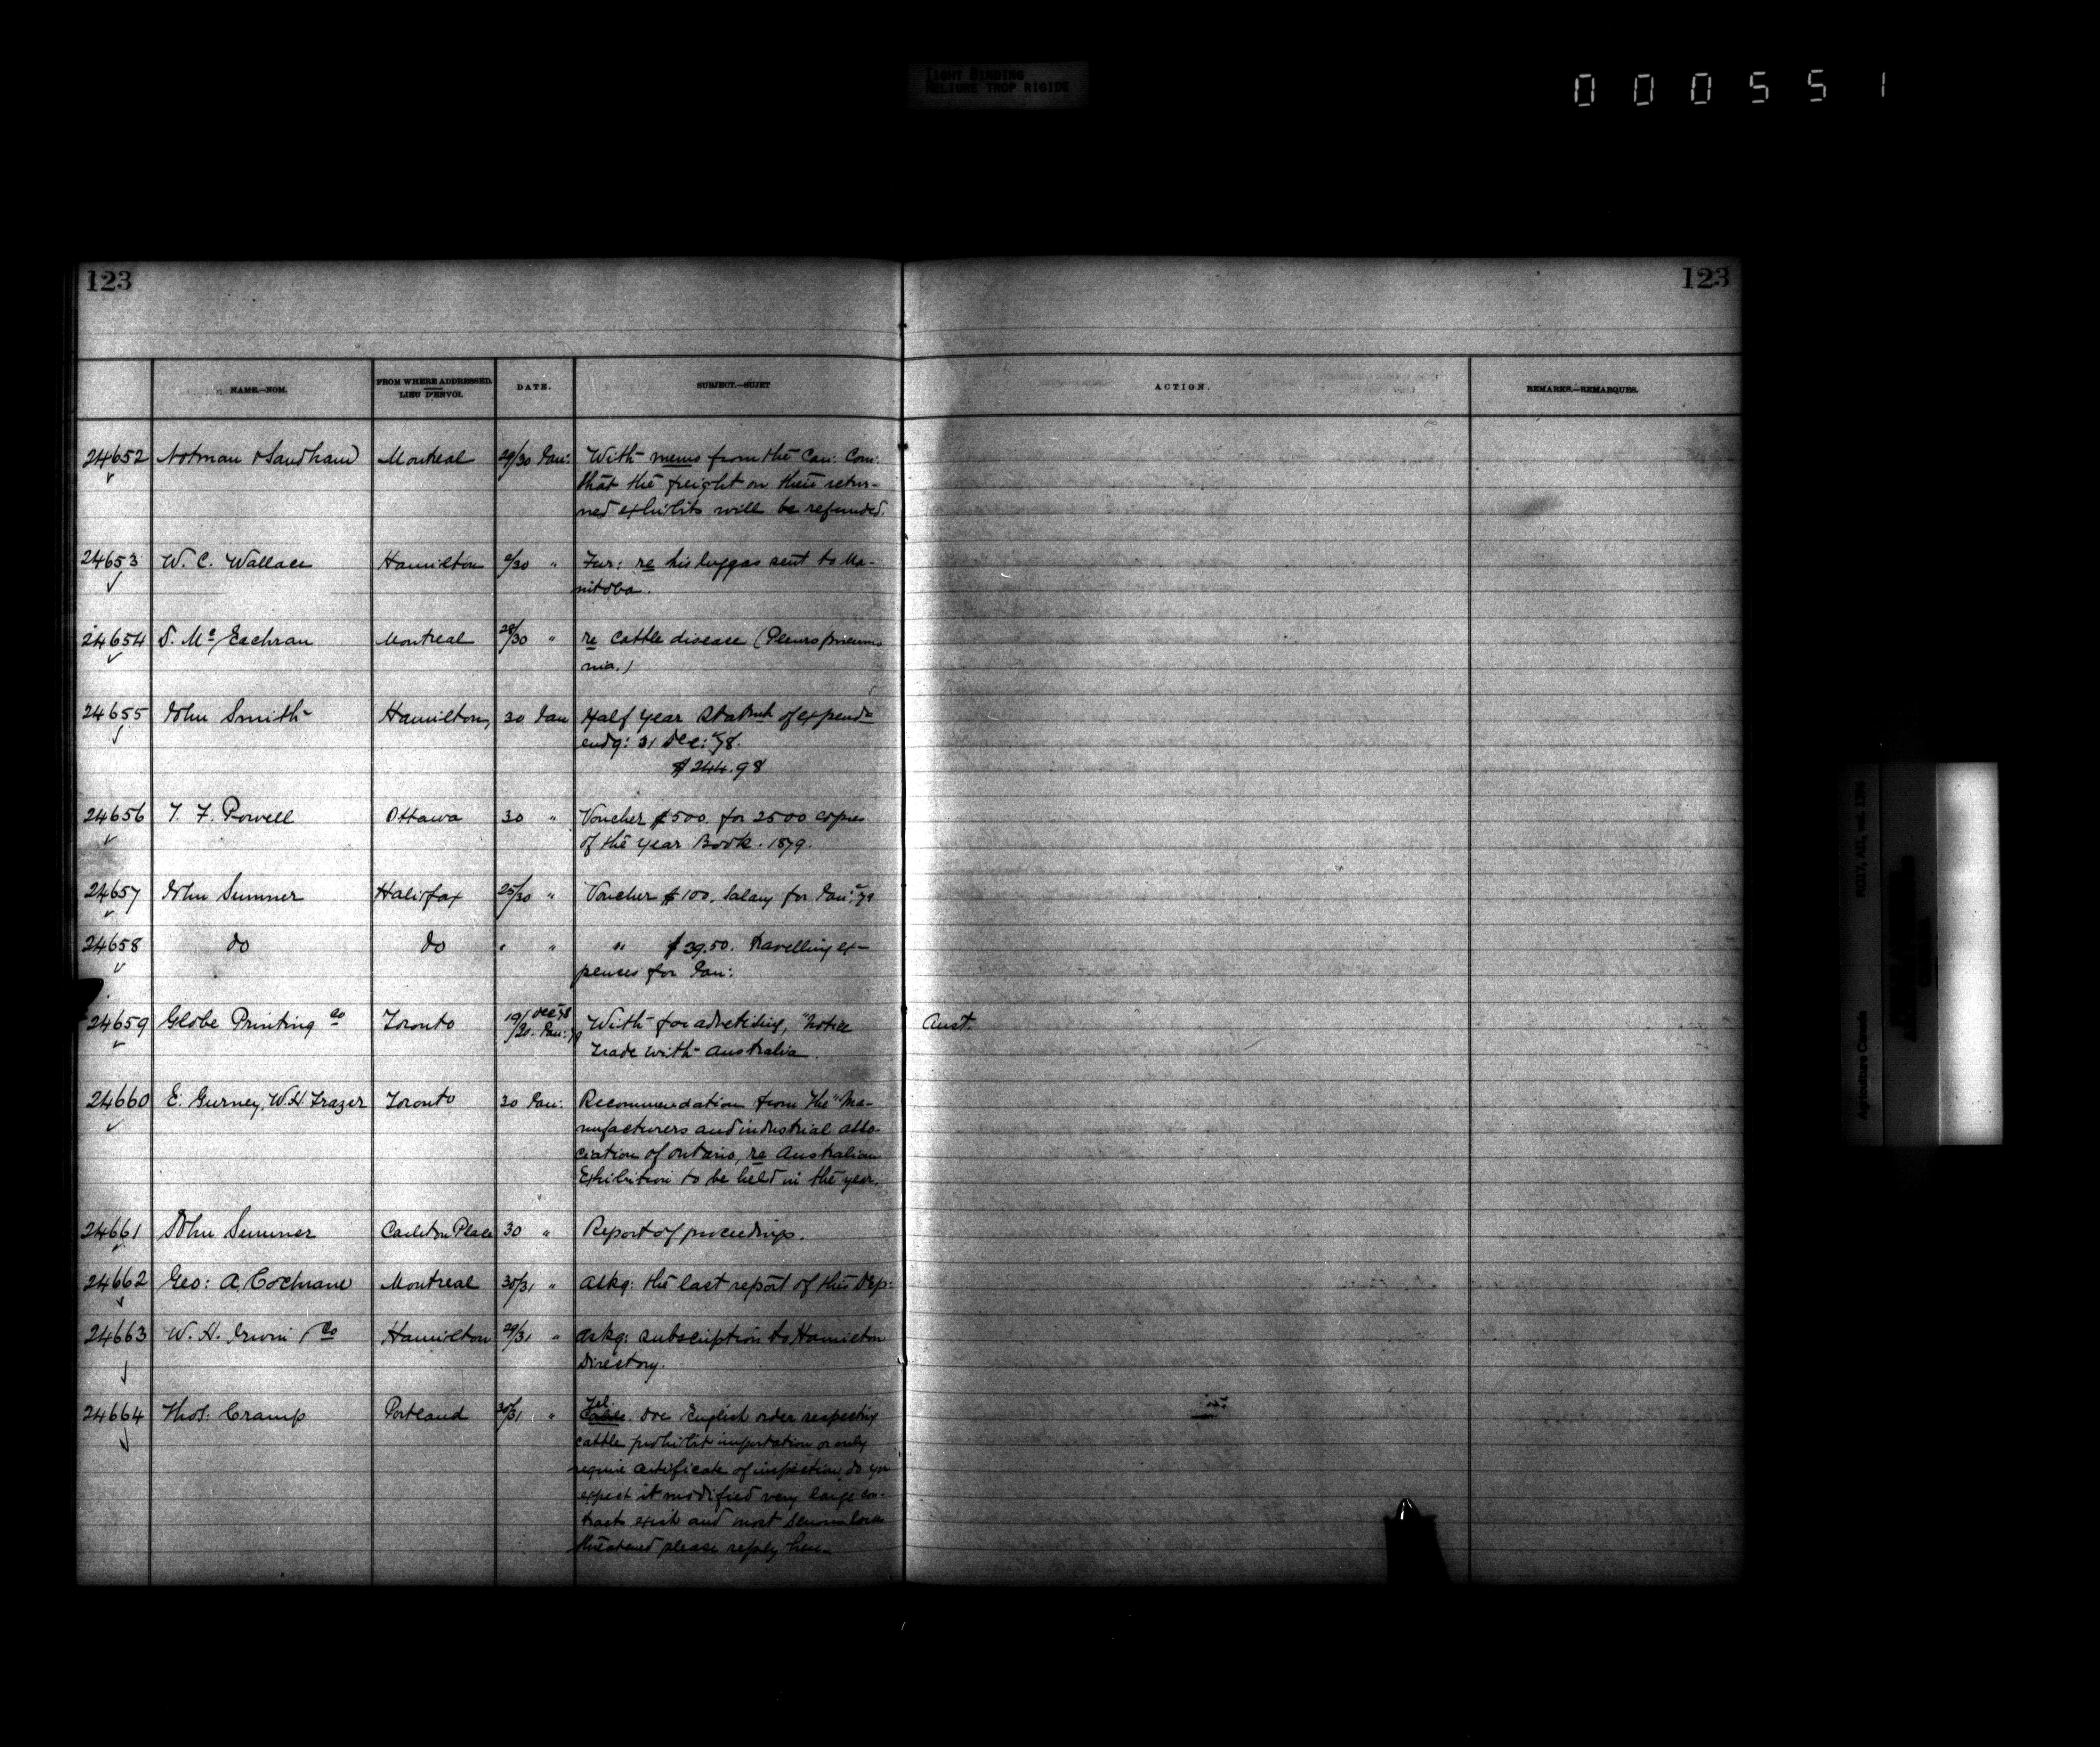 TIGHT BINDING
RELIURE TROP RIGIDE
000551
123 123
NAME.—NOM. FROM WHERE ADDRESSED. LIEU D'ENVOI. DATE. SUBJECT.—SUJET ACTION. REMARKS.—REMARQUES.
24652 Notman & Sandham Montreal 29/30 Jan: With memo from the Can: Com:
that the freight on their retur-
ned exhibits will be refunded.
24653 W. C. Wallace Hamilton /30 " Fur: re his luggas sent to Ma-
nitoba.
24654 D. Mc Eachran Montreal 28/30 " re cattle disease (Pleuro pneumo
nia.)
24655 John Smith Hamilton, 30 Jan Half year Statmt of expendre
endg: 31 Dec: 78.
$244.98
24656 T. F. Powell Ottawa 30 " Voucher $500. for 2500 copies
of the Year Book. 1879.
24657 John Sumner Halifax 25/30 " Voucher $100. Salary for Jan: 79
24658 do do " " " $39.50. Travelling ex-
pences for Jan:
24659 Globe Printing Co Toronto 19/ Dec 78 /30. Jan: 79 With for advertising, "Notice Aust.
Trade with Australia.
24660 E. Gurney, W.H. Frazer Toronto 30 Jan: Recommendation from the "Ma-
nufacturers and industrial asso-
ciation of Ontario, re Australian
Exhibition to be held in the year.
24661 John Sumner Carleton Place 30 " Report of proceedings.
24662 Geo: A. Cochrane Montreal 30/31 " askg: the last report of this Dep:
24663 W. H. Irwin & Co Hamilton 29/31 " askg: subscription to Hamilton
Directory.
24664 Thos: Cramp Portland 30/31 " Tel.
Cable. Doe English order respecting
cattle prohibit importation or only
require certificate of inspection do you
expect it modified very large con-
tracts exist and most serious loss
threatened please reply here
Agriculture Canada RG17, AII, vol.